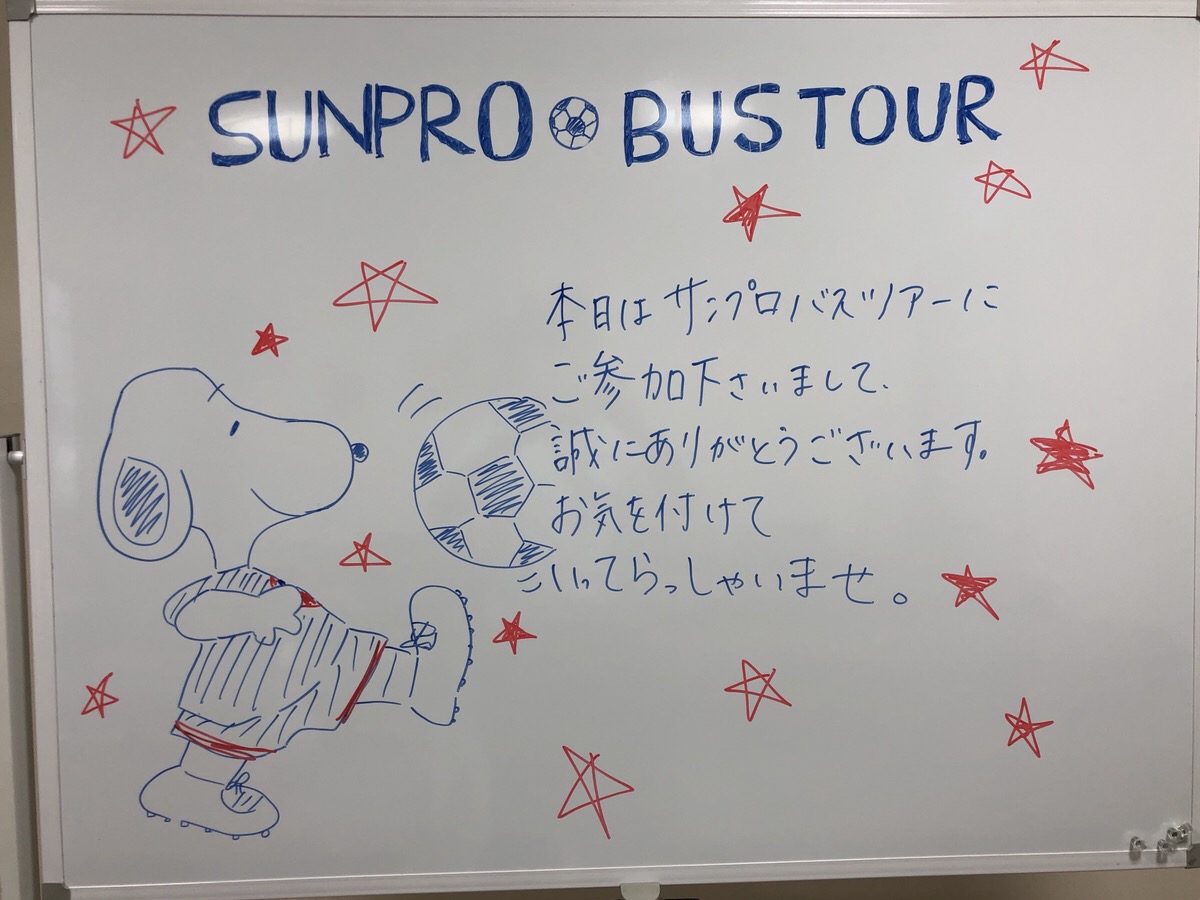 SUNPRO BUS TOUR
本日はサンプロバスツアーに
ご参加下さいまして、
誠にありがとうございます。
お気を付けて
いってらっしゃいませ。